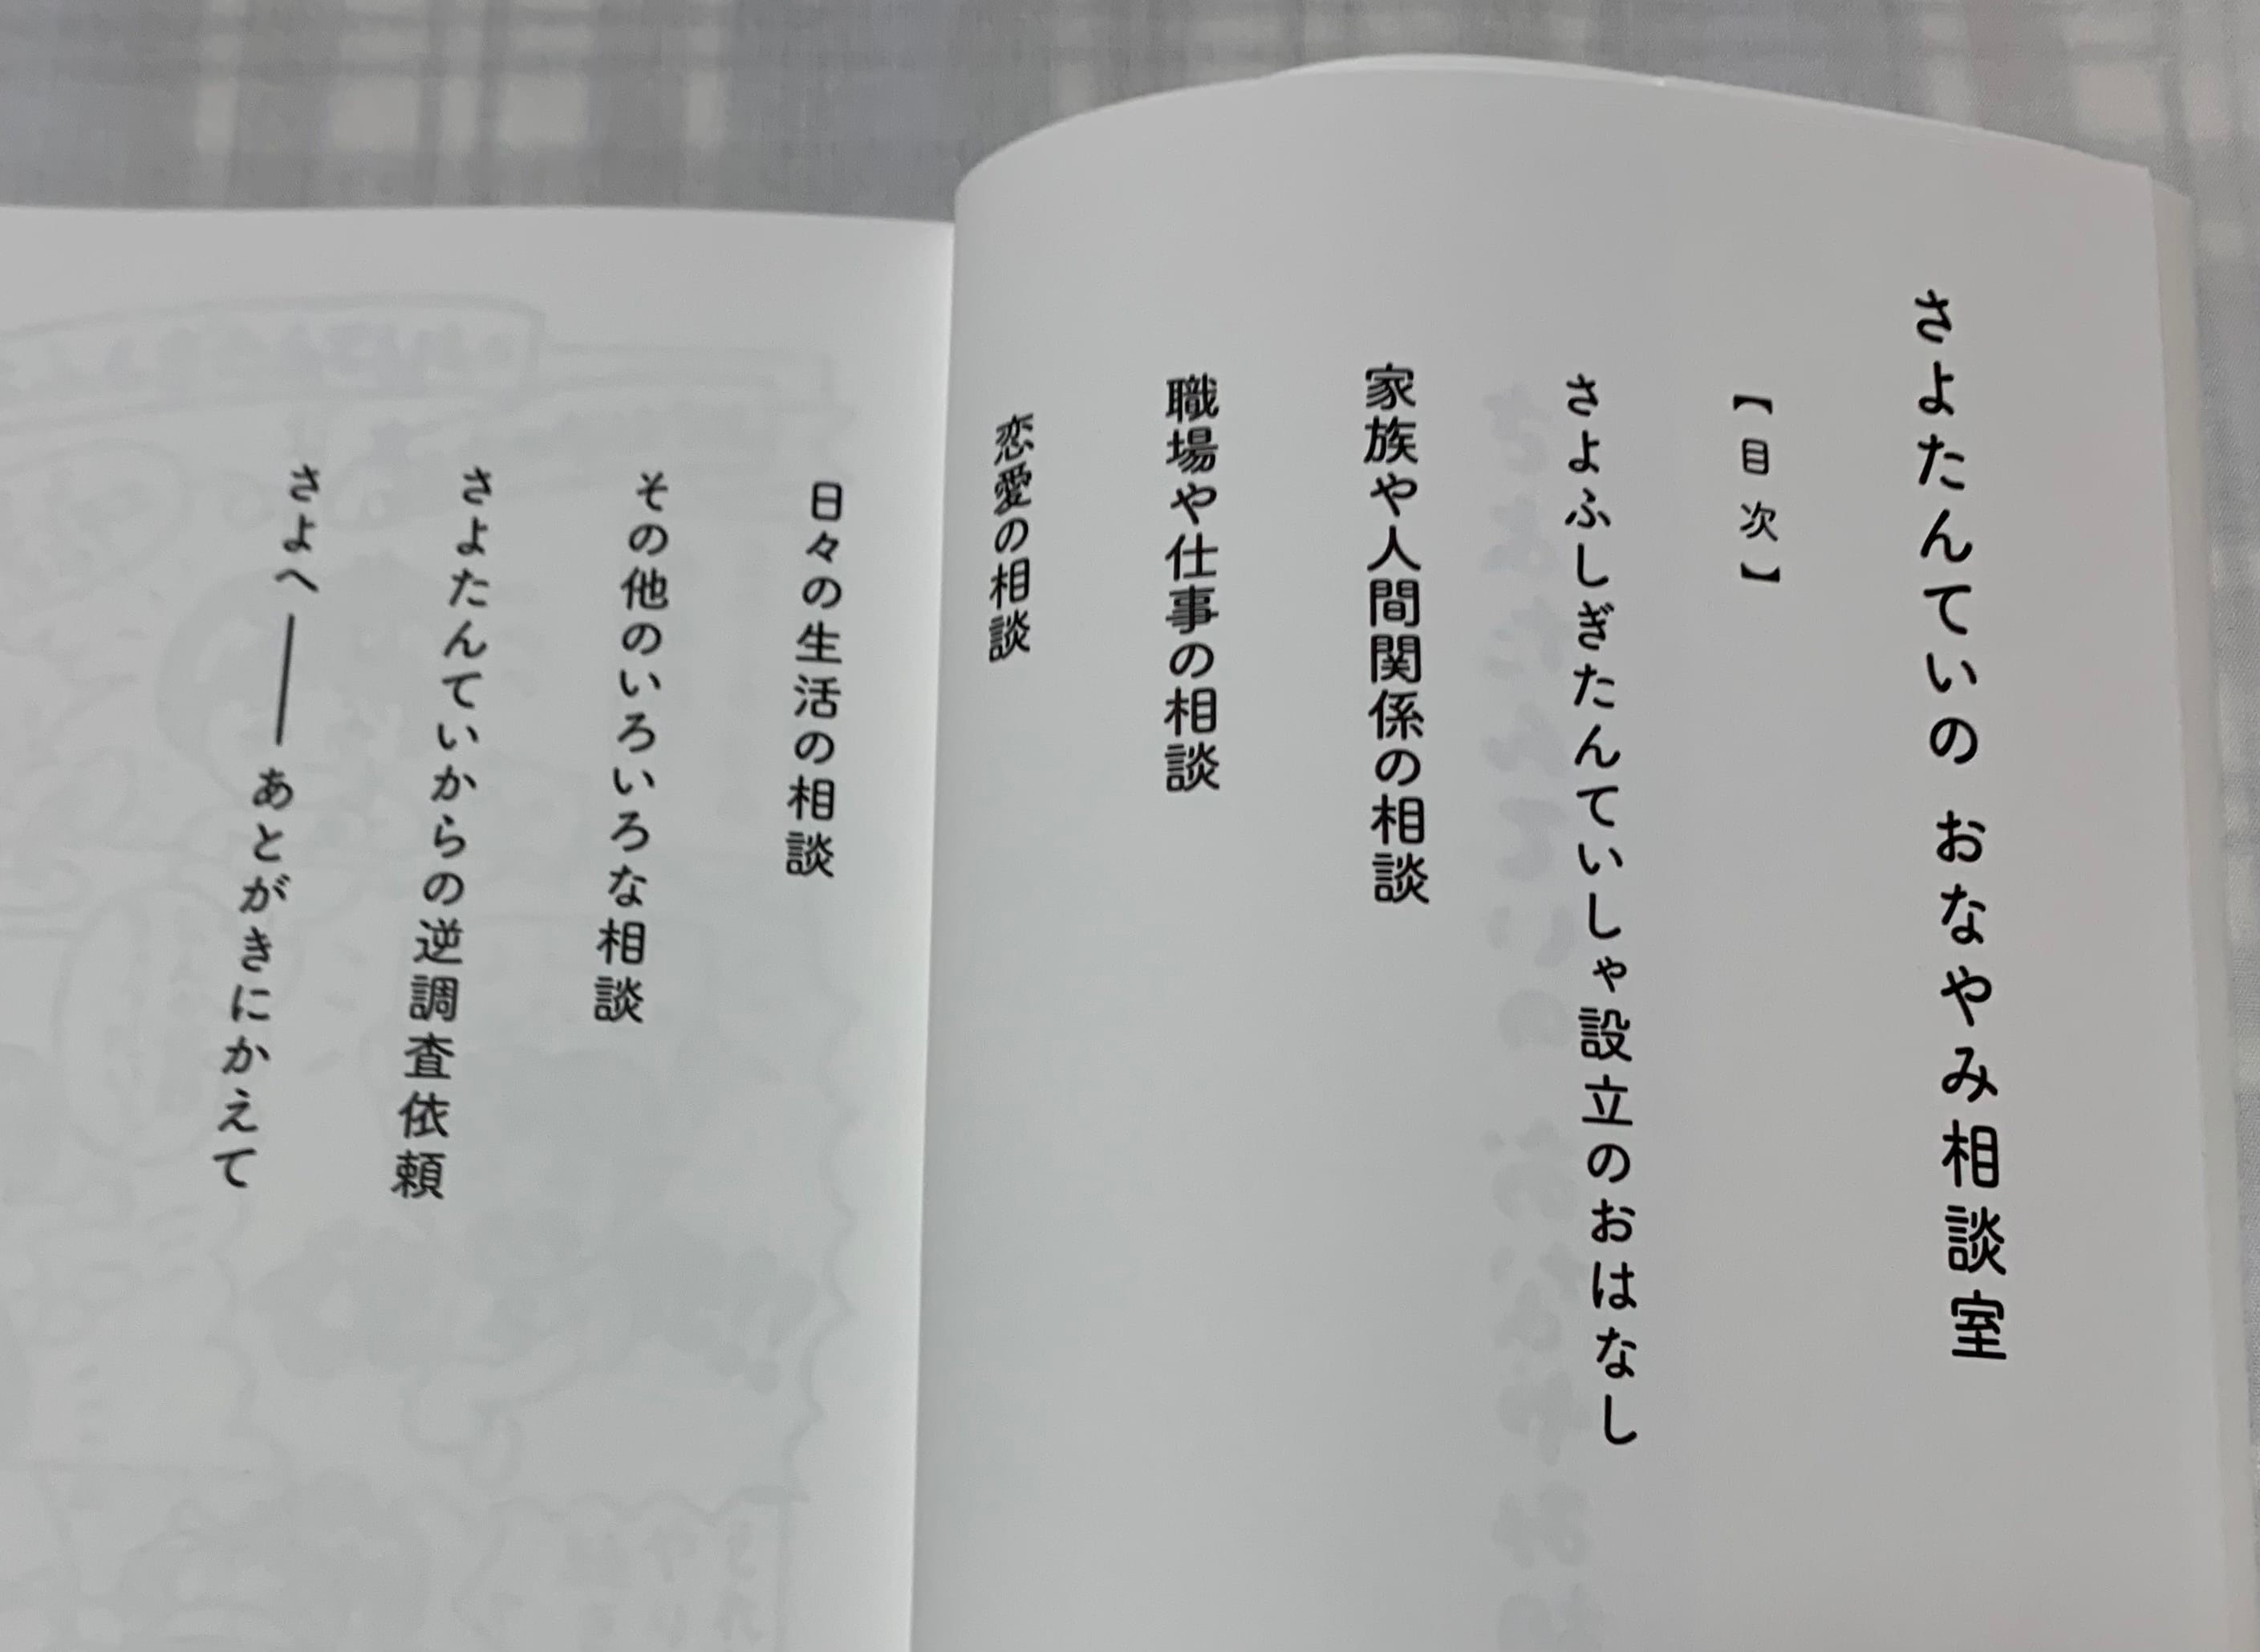 さよたんていの おなやみ相談室
【目次】
さよふしぎたんていしゃ設立のおはなし
家族や人間関係の相談
職場や仕事の相談
恋愛の相談
日々の生活の相談
その他のいろいろな相談
さよたんていからの逆調査依頼
さよへ――あとがきにかえて